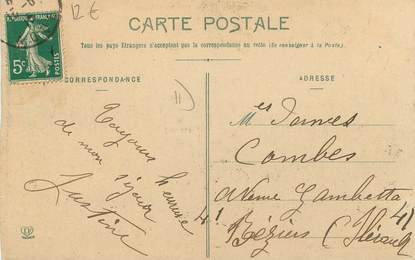 12 €
CARTE POSTALE
Tous les pays Etrangers n'acceptent pas la correspondance au recto (Se renseigner à la Poste)
CORRESPONDANCE
ADRESSE
5c
Toujours heureuse
de mon séjour
Justine
Mes James
Combes
Avenue Gambetta
41 Béziers (Hérault)
41